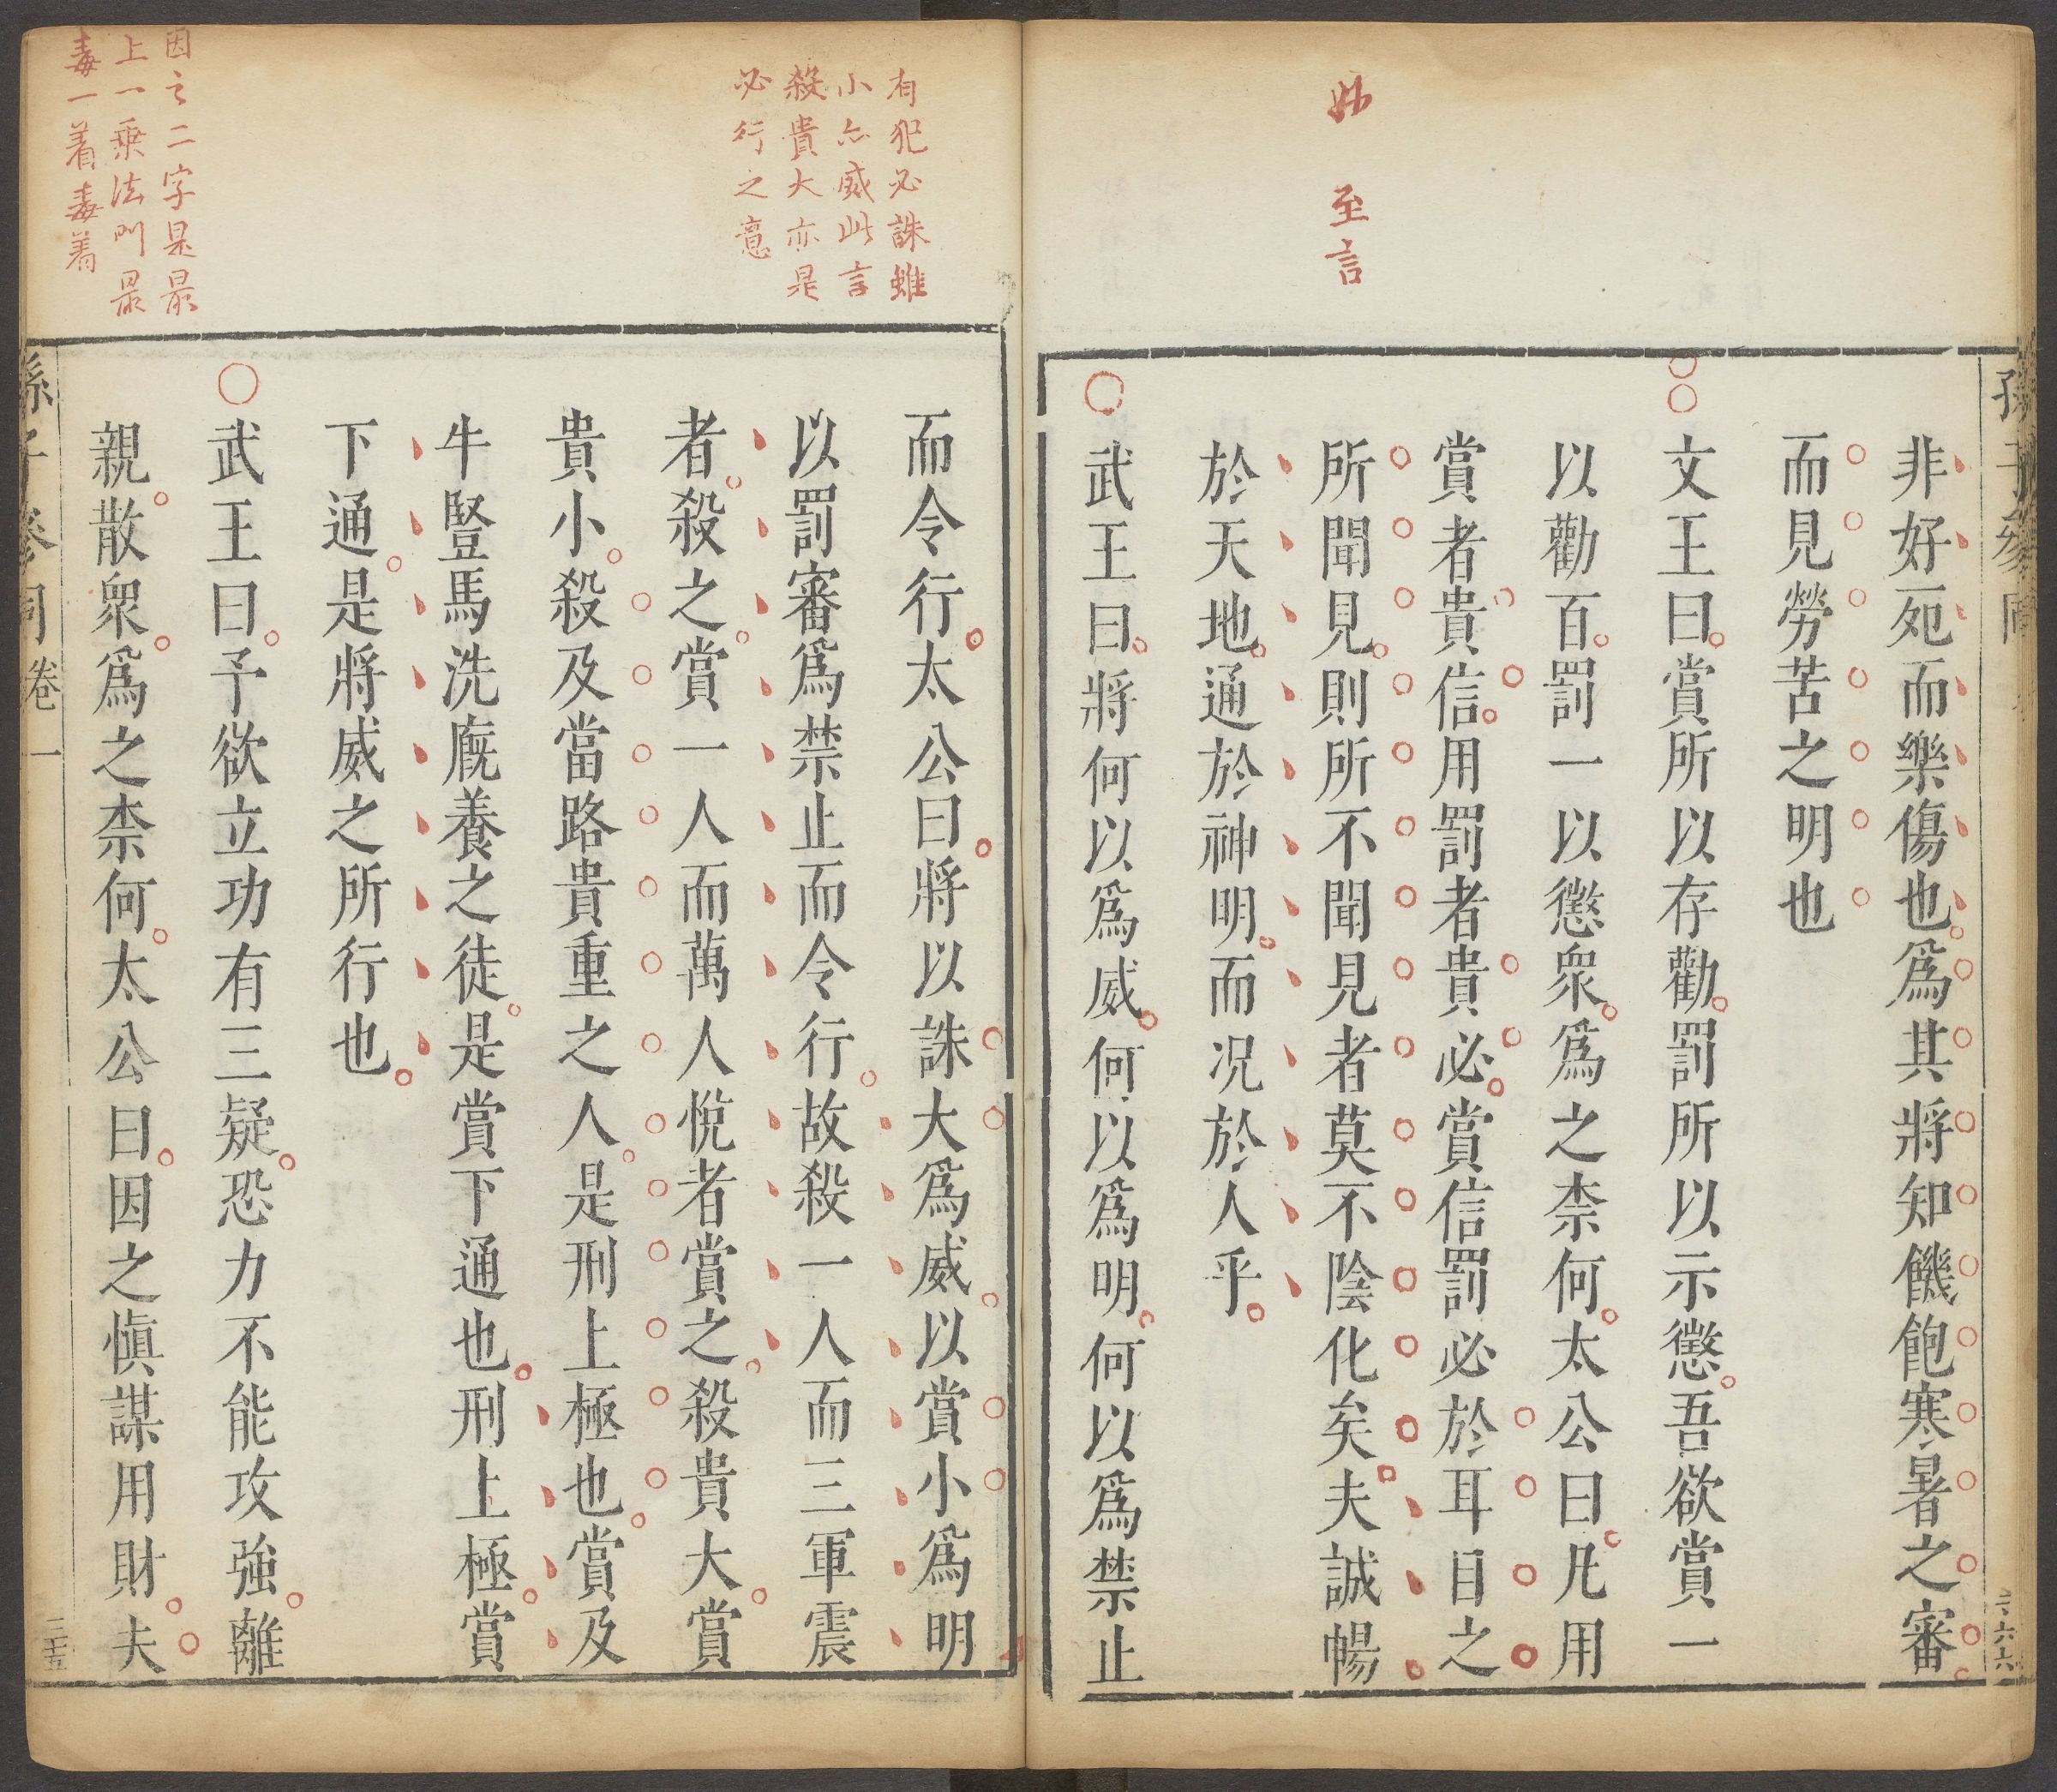 妙
至言
非好死而樂傷也爲其將知饑飽寒暑之審
而見勞苦之明也
文王曰賞所以存勸罰所以示懲吾欲賞一
以勸百罰一以懲衆爲之柰何太公曰凡用
賞者貴信用罰者貴必賞信罰必於耳目之
所聞見則所不聞見者莫不陰化矣夫誠暢
於天地通於神明而况於人乎
武王曰將何以爲威何以爲明何以爲禁止
有犯必誅雖
小亦威此言
殺貴大亦是
必行之意
而令行太公曰將以誅大爲威以賞小爲明
以罰審爲禁止而令行故殺一人而三軍震
者殺之賞一人而萬人悅者賞之殺貴大賞
貴小殺及當路貴重之人是刑上極也賞及
牛豎馬洗廐養之徒是賞下通也刑上極賞
下通是將威之所行也
因之二字是最
上一乘法門最
毒一着毒着
武王曰予欲立功有三疑恐力不能攻強離
親散衆爲之柰何太公曰因之愼謀用財夫
孫子參同卷一
三五